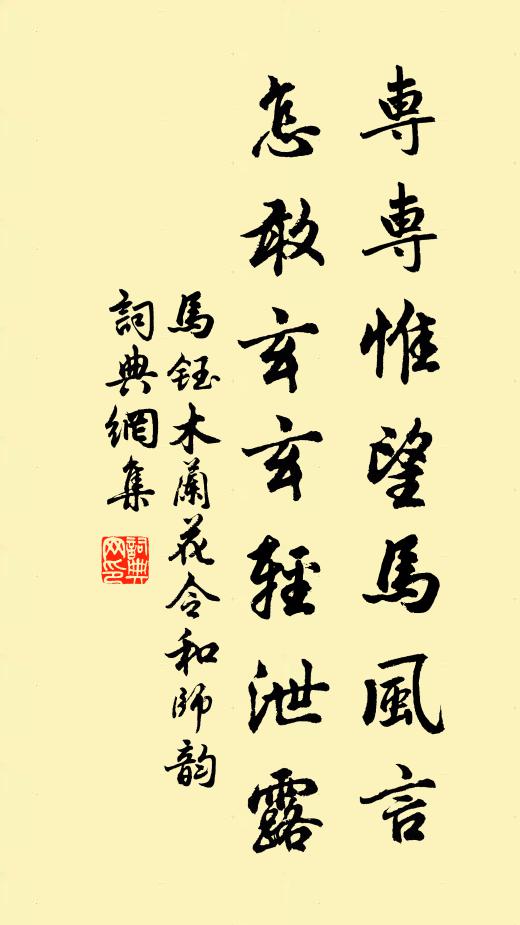 專專惟望馬風言
怎敢玄玄輕泄露
馬鈺木蘭花令和師韵
詞典網集
詞典網印